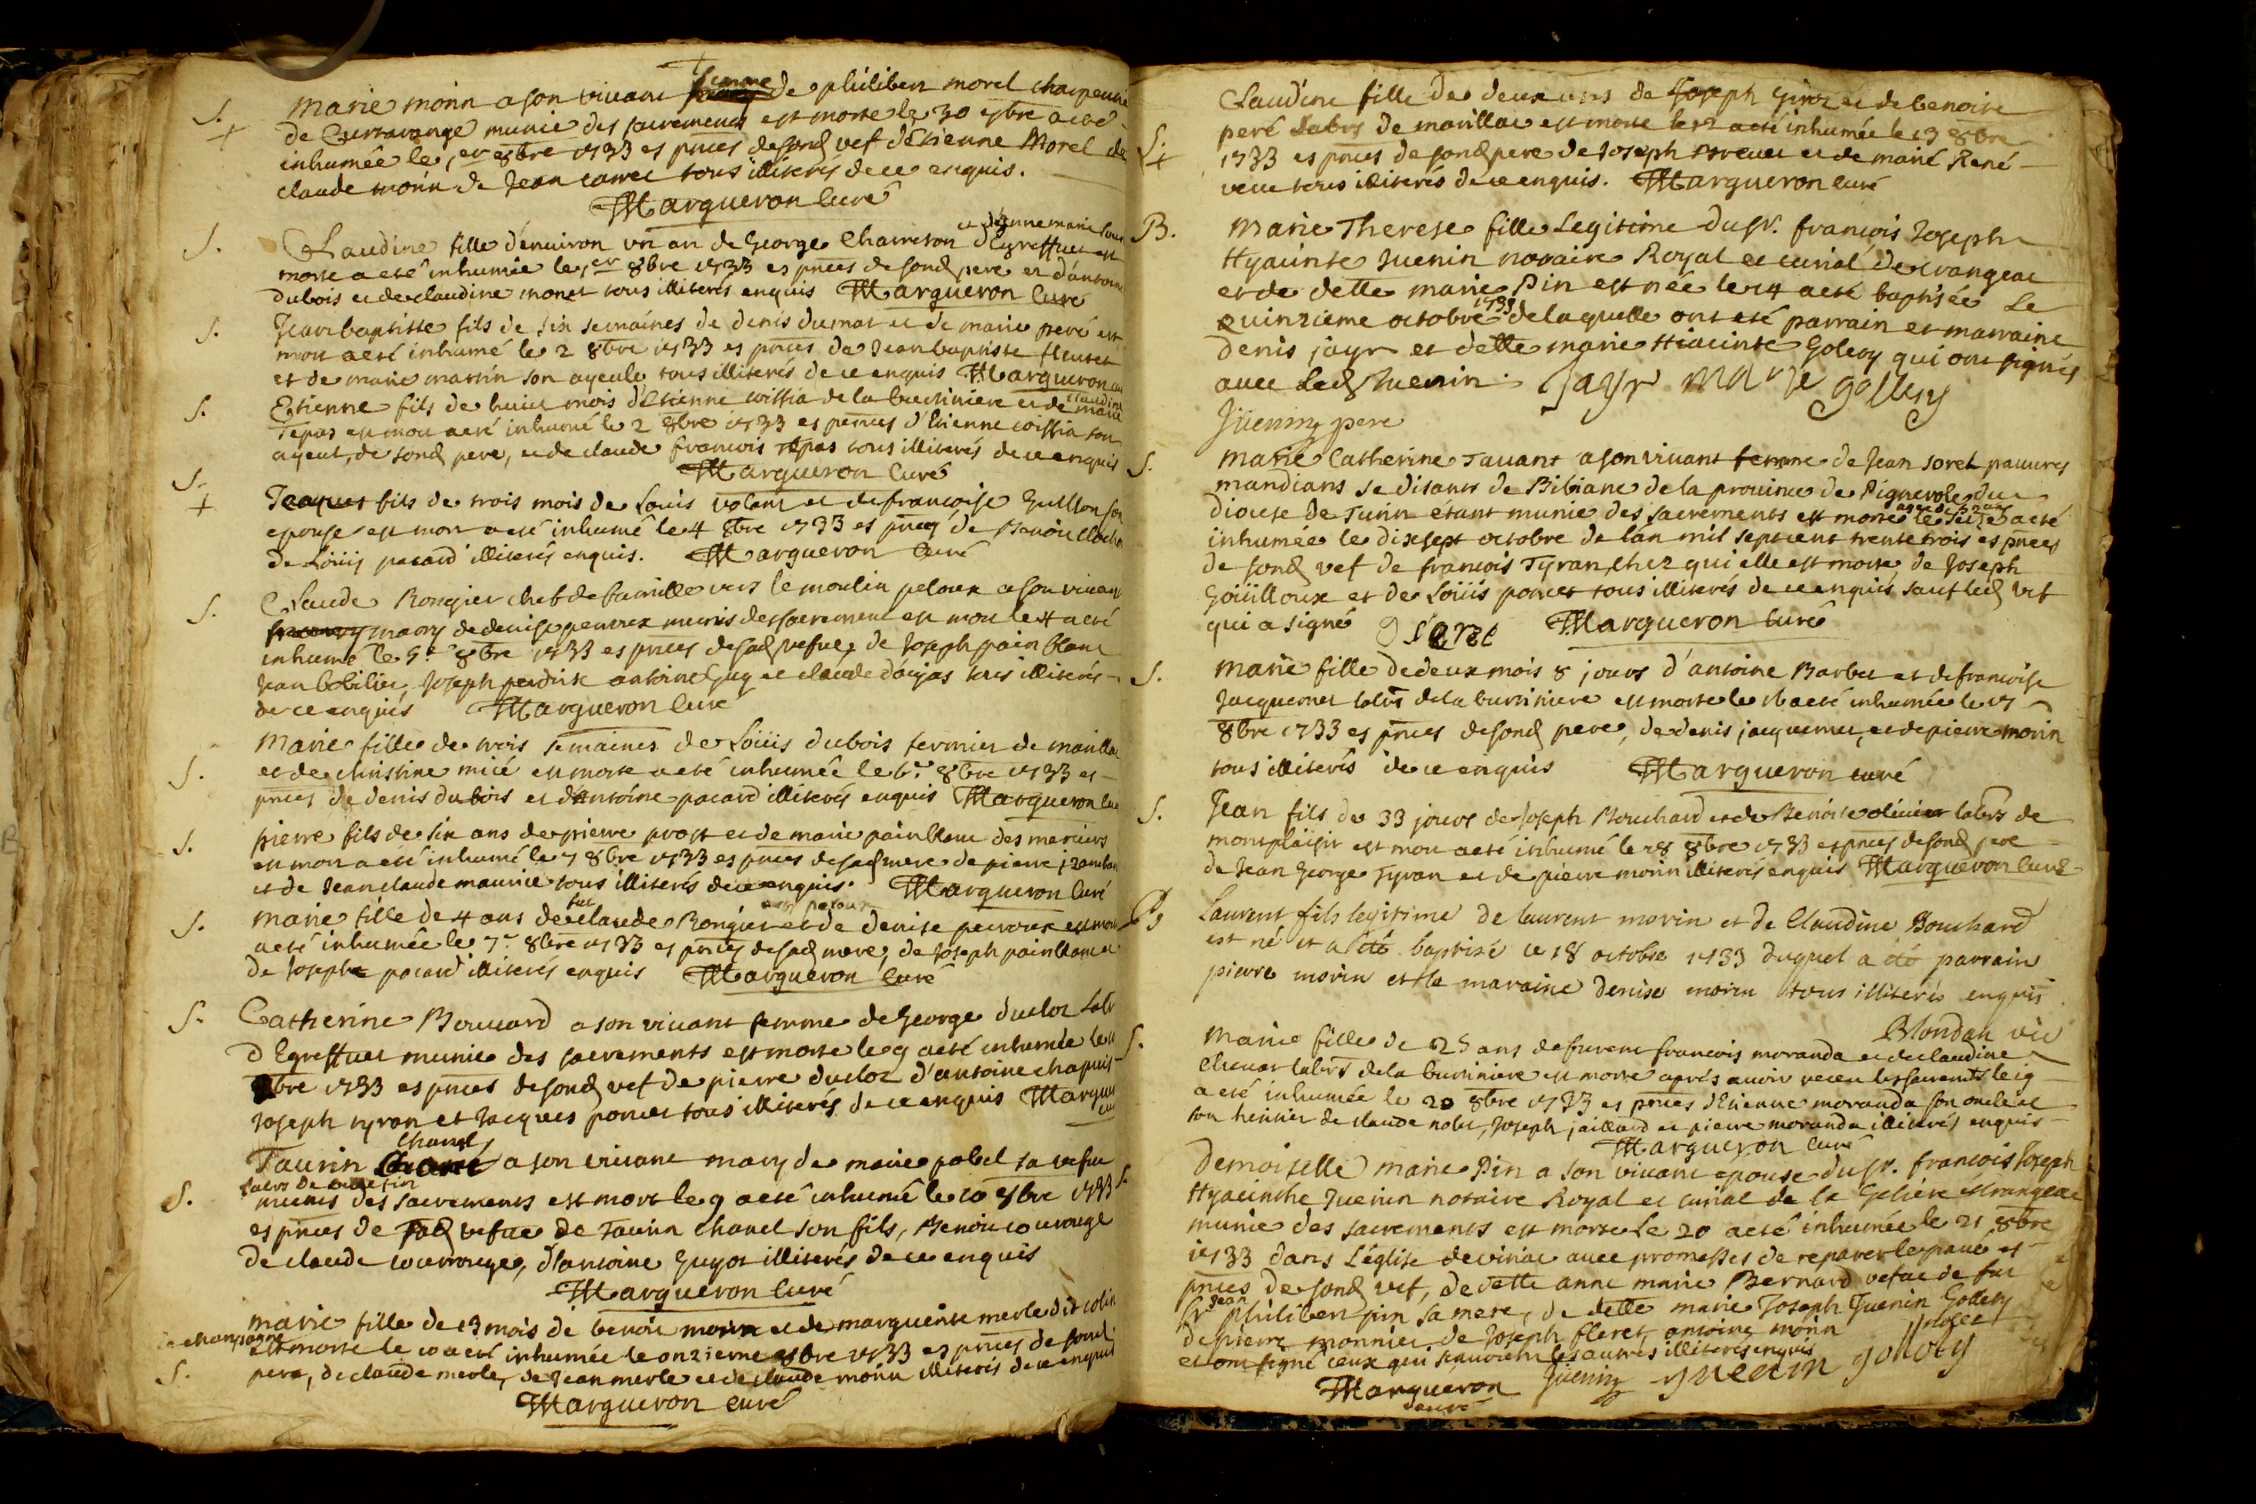 S. Marie morin a son vivant femme de philibert morel charpentie
+ de Curtarange munie des sacrements est morte le 30 7bre a eté
inhumée le 1er 8bre 1733 es pnces de sond vef d'Etienne Morel de
claude morin de Jean carrec tous illiterés de ce enquis.
Margueron Curé
et d'Etiennemarie
S. Claudine fille d'environ un an de George Charreton d'Egreffuet est
morte a eté inhumée le 1er 8bre 1733 es pnces de sond pere et d'antoine
dubois et de claudine monet tous illiterés enquis Margueron Curé
S. Jean baptiste fils de six semaines de denis dumat et de marie peré est
mort a eté inhumé le 2 8bre 1733 es pnces de Jean baptiste fleuret
et de marie martin son ayeule tous illiterés de ce enquis Margueron
S. Etienne fils de huict mois d'Etienne coissia de la buctiniere et de claudine marie
Tepas est mort a eté inhumé le 2 8bre 1733 es pnces d'Etienne coissia son
ayeul, de sond pere, et de claude francois Tepas tous illiterés de ce enquis
Margueron Curé
S. + Jacques fils de trois mois de Louis volant et de francoise Guillon son
epouse est mort a eté inhumé le 4 8bre 1733 es pnces de Benoit
de Loüis pacard illiterés enquis. Margueron Curé
S. Claude Rongier chef de famille vers le moulin peloux a son vivant
mary de denise peuvrex munis des sacrement est mort le 4 a eté
inhumé le 5e 8bre 1733 es pnces de sad vefue, de Joseph pain blanc
Jean bobilier, Joseph antoine Guy et claude tous illiterés
de ce enquis Margueron Curé
S. Marie fille de trois semaines de Loüis dubois fermier de marillac
et de christine micé est morte a eté inhumée le 6e 8bre 1733 es
pnces de denis dubois et d'Antoine pacard illiterés enquis Margueron Cu
S. pierre fils de six ans de pierre prost et de marie painblanc des merciers
est mort a eté inhumé le 7 8bre 1733 es pnces de sad mere de pierre
et de Jean claude maurice tous illiterés de ce enquis. Margueron Curé
S. Marie fille de 4 ans de fut claude Rongier et de denise peuvrex est morte
a eté inhumée le 7e 8bre 1733 es pnces de sad mere, de Joseph painblanc et
de Joseph pacard illiterés enquis Margueron Curé
S. Catherine Bouvard a son vivant femme de George ducloz Labr
d'Egreffuet munie des sacrements est morte le 9 a eté inhumée le
8bre 1733 es pnces de sond vef de pierre ducloz d'antoine chapuis
Joseph tyran et Jacques poncet tous illiterés de ce enquis Margue
Taurin chavel a son vivant mary de marie pobel sa vefue
S. munis des sacrements est mort le 9 a eté inhumé le 10 8bre 1733
es pnces de sad vefue de Taurin chavel son fils, Benoit courouge
de claude courrouge, d'antoine Guyot illiterés de ce enquis
Margueron Curé
marie fille de 13 mois de benoit morin et de marguerite merle dit colin
est morte le 10 a eté inhumée le onzieme 8bre 1733 es pnces de sond
S. pere, de claude merle, de Jean merle et de claude morin illiterés de ce enquis
Margueron curé
Claudine fille de deux ans de Joseph et de benoite
S. + peré Labrs de marillac est morte le 12 a eté inhumée le 13 8bre
1733 es pnces de sond pere de Joseph Brevet et de marie René
veue tous illiterés de ce enquis. Margueron Curé
B. Marie Therese fille Legitime du sr. francois Joseph
Hyacinte Juenin notaire Royal et curial de crangeac
et de delle marie Pin est née le 14 a eté baptisée Le
quinzieme octobre 1733 de laquelle ont eté parrain et marraine
denis jayr et delle marie Hiacinte Golety qui ont signés
avec Led Juenin. Jayr Marie gollety
Jüenin pere
S. Marie Catherine Tavant a son vivant femme de Jean soret pauvres
mandians se disants de Bibiane de la province de Pignerole du
diocese de Turin etant munie des sacrements est morte le seize a eté
inhumée le dixsept octobre de l'an mil septcent trente trois es pnces
de sond vef de francois Tyran, chez qui elle est morte de Joseph
Goüilloux et de Loüis poncet tous illiterés de ce enquis sauf led vef
qui a signé Margueron Curé
S. Marie fille de deux mois 8 jours d'antoine Barbet et de francoise
Jacquemet labrs de la buctiniere est morte le 16 a eté inhumée le 17
8bre 1733 es pnces de sond pere, de denis jacquemet, et de pierre morin
tous illiterés de ce enquis Margueron curé
S. Jean fils de 33 jours de Joseph Bouchard et de Benoite olivier labrs de
montplaisir est mort a eté inhumé le 18 8bre 1733 es pnces de sond pere
de Jean George Tyran et de pierre morin illiterés enquis Margueron Curé
B. Laurent fils legitime de laurent morin et de Claudine Bouchard
est né et a été baptisé le 18 octobre 1733 duquel a été parrain
pierre morin et la maraine denise morin tous illiterés enquis
Blondan vic
S. Marie fille de 25 ans de furent francois moranda et de claudine
chevat labrs de la buctiniere est morte aprés avoir receu les sacremts le 19
a eté inhumée le 20 8bre 1733 es pnces d'Etienne moranda son oncle et
son heritier de claude nolet, Joseph jaillard et pierre moranda illiterés enquis
Margueron Curé
Demoiselle marie Pin a son vivant epouse du sr. francois Joseph
S. Hyacinthe Juenin notaire Royal et curial de la Geliere et crangeac
munie des sacrements est morte Le 20 a eté inhumée le 21 8bre
1733 dans L'église de viriac avec promesses de reparer le pavé es
pnces de sond vef, de delle anne marie Bernard vefue de fut
sr philibert pin sa mere, de delle marie Joseph Juenin Gollety
de pierre monnier de Joseph fleret, antoine morin
et ont signé ceux qui scauvent les autres illiterés enquis
Margueron Curé Jüenin Juenin gollety